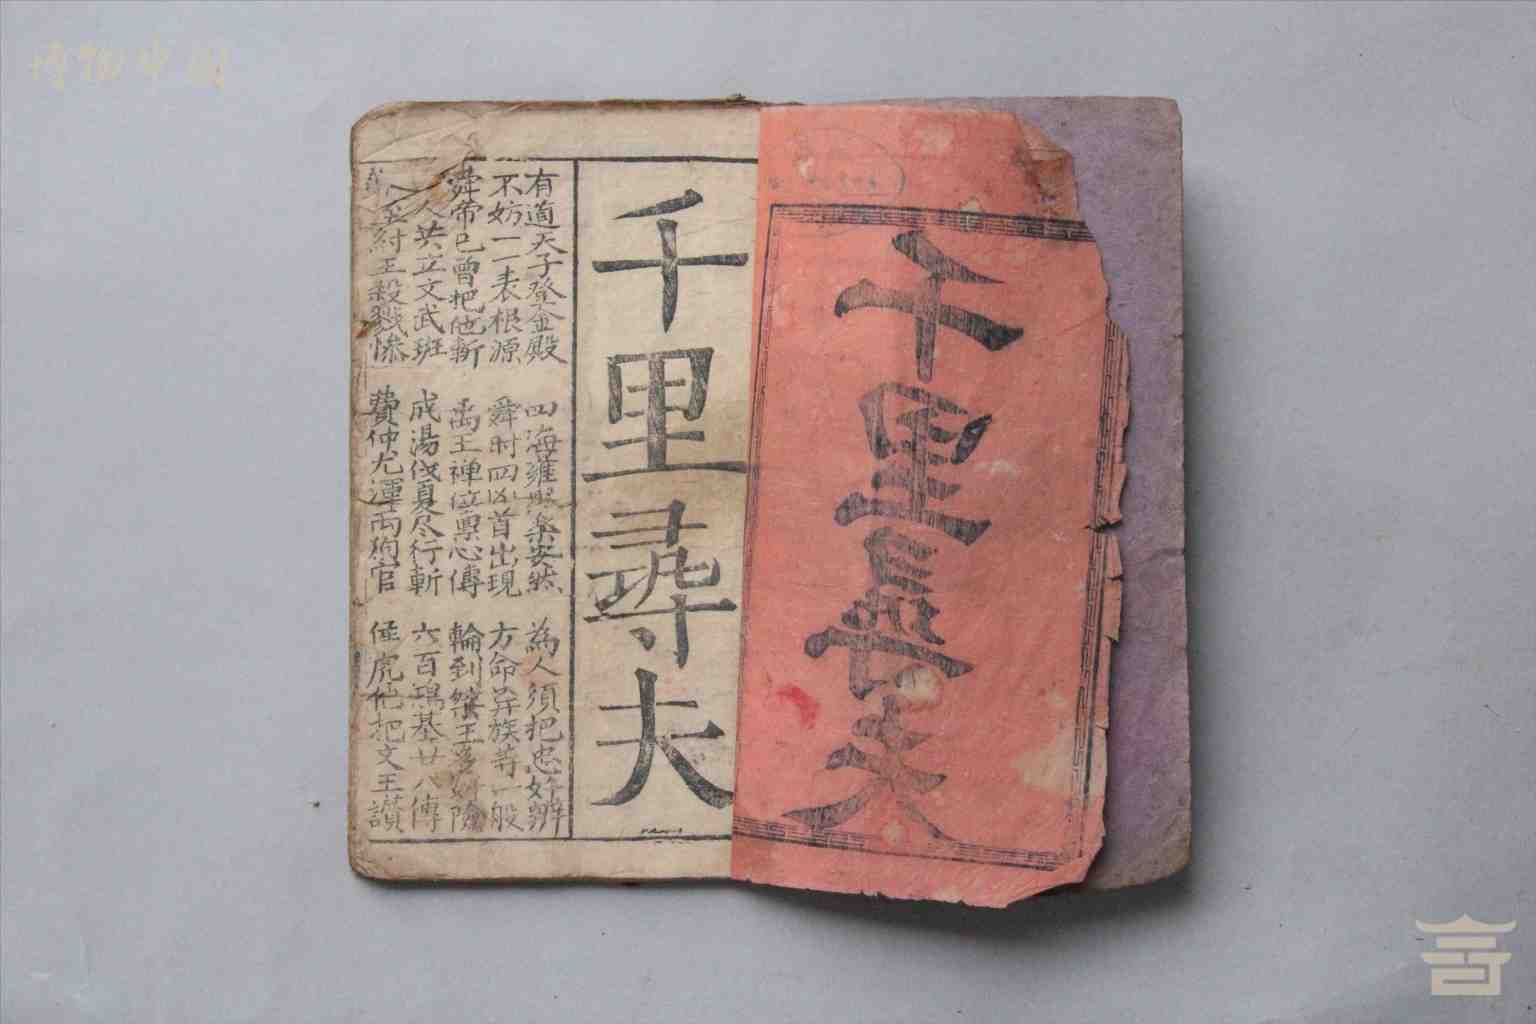 博物中国
千里長夫
千里尋夫
有道天子登金殿 四海雍熙樂安然 為人須把忠奸辨
不妨一一表根源 舜时四凶首出現 方命弃族等一般
舜帝已曾把他斬 禹王禅位禀心傳 輪到桀王多奸險
人共立文武班 成湯伐夏尽行斬 六百鴻基廿八傳
至紂王殺戮慘 費仲尤渾兩狗官 虎他把文王讃